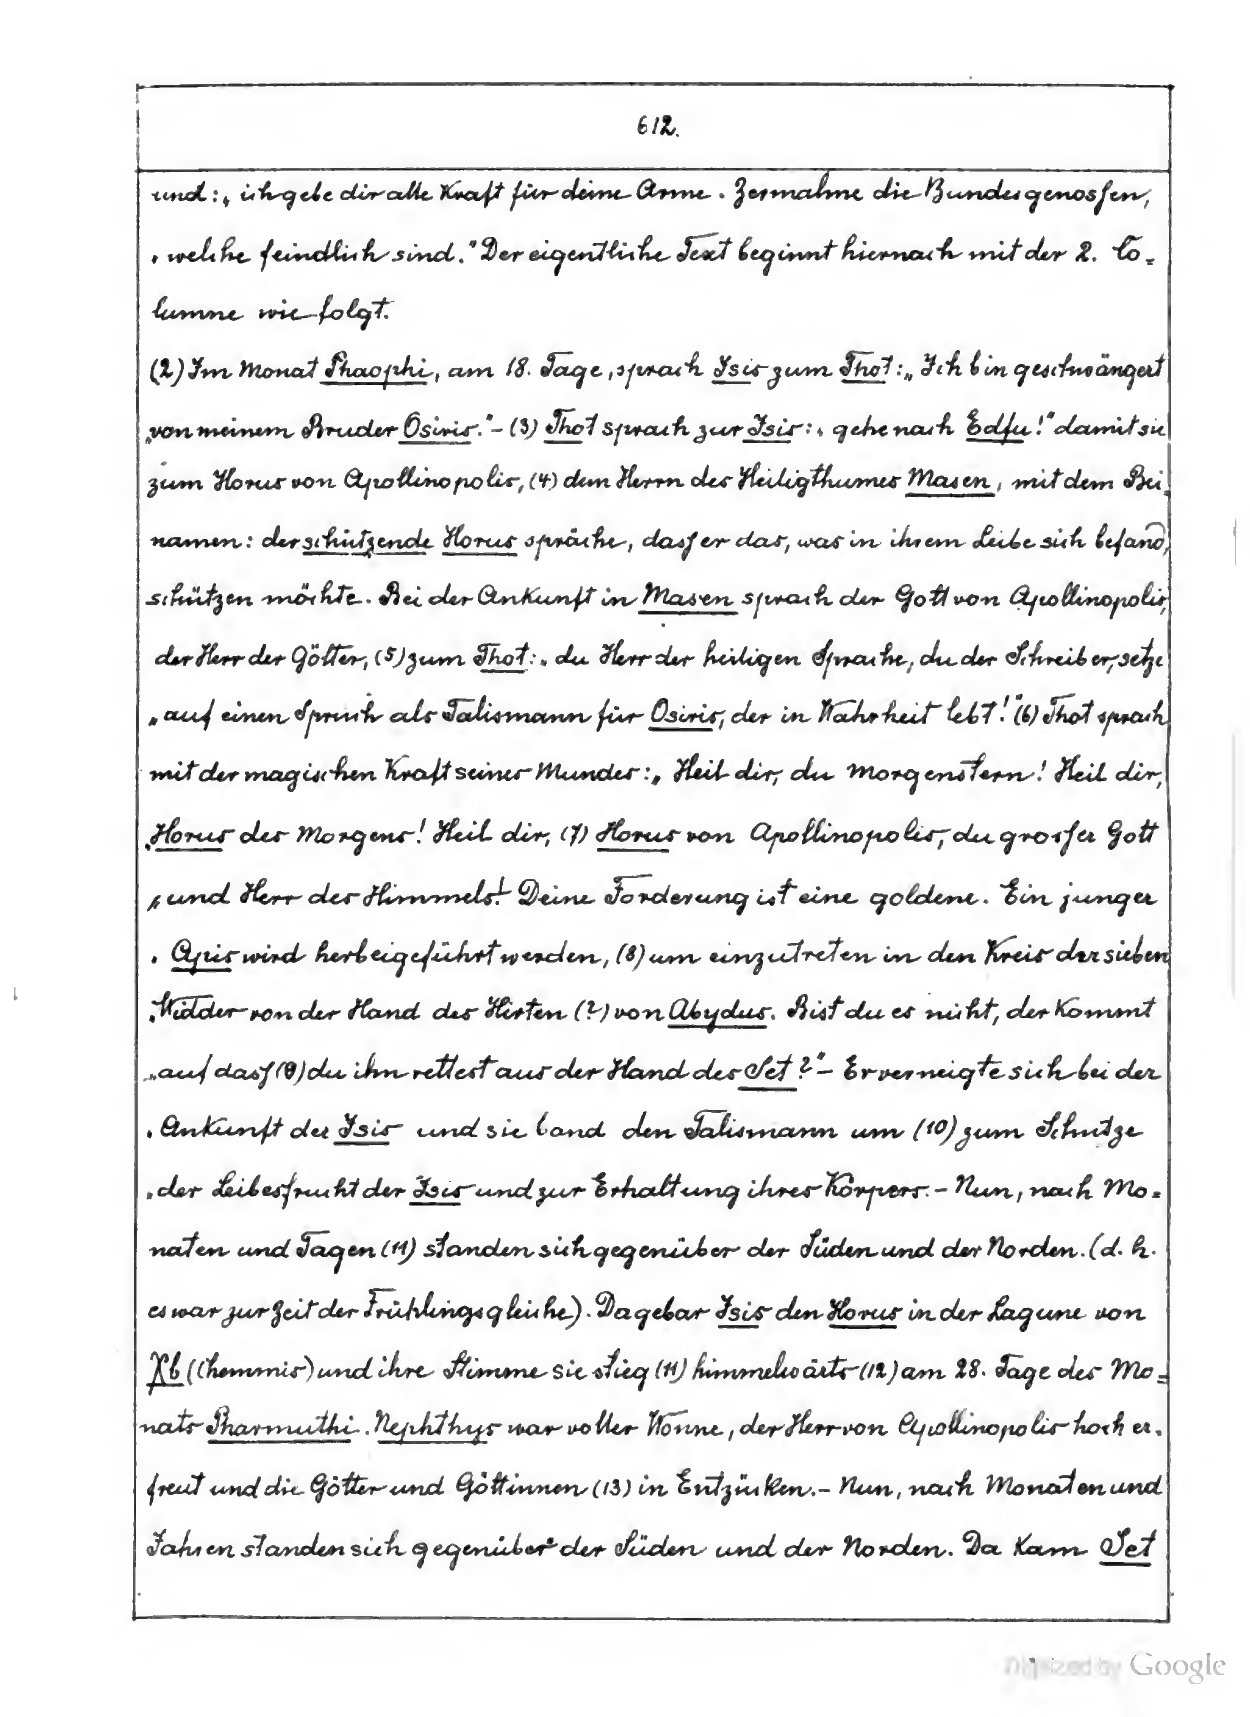 612.
und: „ich gebe dir alle Kraft für deine Arme. Zermalme die Bundesgenossen,
„welche feindlich sind." Der eigentliche Text beginnt hiernach mit der 2. Co=
lumne wie folgt.
(2) Im Monat Phaophi, am 18. Tage, sprach Isis zum Thot: „Ich bin geschwängert
„von meinem Bruder Osiris." – (3) Thot sprach zur Isis: „gehe nach Edfu!" damit sie
zum Horus von Apollinopolis, (4) dem Herrn des Heiligthumes Masen, mit dem Bei=
namen: der schützende Horus spräche, dass er das, was in ihrem Leibe sich befand,
schützen möchte. Bei der Ankunft in Masen sprach der Gott von Apollinopolis,
der Herr der Götter, (5) zum Thot: „du Herr der heiligen Sprache, du der Schreiber, setze
„auf einen Spruch als Talismann für Osiris, der in Wahrheit lebt!" (6) Thot sprach
mit der magischen Kraft seines Mundes: „Heil dir, du Morgenstern! Heil dir,
„Horus des Morgens! Heil dir, (7) Horus von Apollinopolis, du grosser Gott
„und Herr des Himmels! Deine Forderung ist eine goldene. Ein junger
„Apis wird herbeigeführt werden, (8) um einzutreten in den Kreis der sieben
„Widder von der Hand des Hirten (?) von Abydus. Bist du es nicht, der kommt
„auf dass (9) du ihn rettest aus der Hand des Set?" – Er verneigte sich bei der
„Ankunft der Isis und sie band den Talismann um (10) zum Schutze
„der Leibesfrucht der Isis und zur Erhaltung ihres Körpers. – Nun, nach Mo=
naten und Tagen (11) standen sich gegenüber der Süden und der Norden. (d. h.
es war zur Zeit der Frühlingsgleiche). Da gebar Isis den Horus in der Lagune von
Xb (Chemmis) und ihre Stimme sie stieg (11) himmelwärts (12) am 28. Tage des Mo=
nats Pharmuthi. Nephthys war voller Wonne, der Herr von Apollinopolis hoch er=
freut und die Götter und Göttinnen (13) in Entzücken. – Nun, nach Monaten und
Jahren standen sich gegenüber der Süden und der Norden. Da kam Set
Digitized by Google